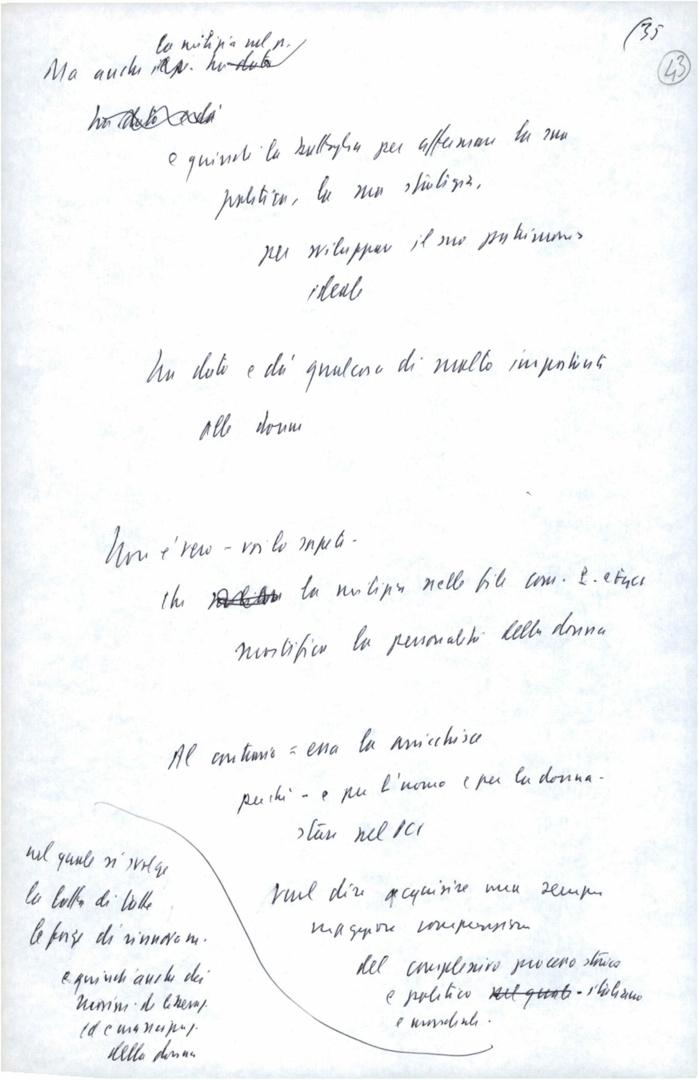 35
43
la milizia nel p.
Ma anche
ha dato e dà
e quindi la battaglia per affermare la sua
politica, la sua strategia,
per sviluppare il suo patrimonio
ideale
ha dato e dà qualcosa di molto importante
alle donne
Non è vero - voi lo sapete -
che la milizia nelle file com.
mortifica la personalità della donna
Al contrario = essa la arricchisce
perché - e per l'uomo e per la donna -
stare nel PCI
vuol dire acquisire una sempre
maggiore comprensione
del complessivo processo storico
e politico nel quale - italiano
e mondiale.
nel quale si svolge
la lotta di tutte
le forze di rinnovam.
e quindi anche dei
movim. di liberaz.
ed emancipaz.
della donna